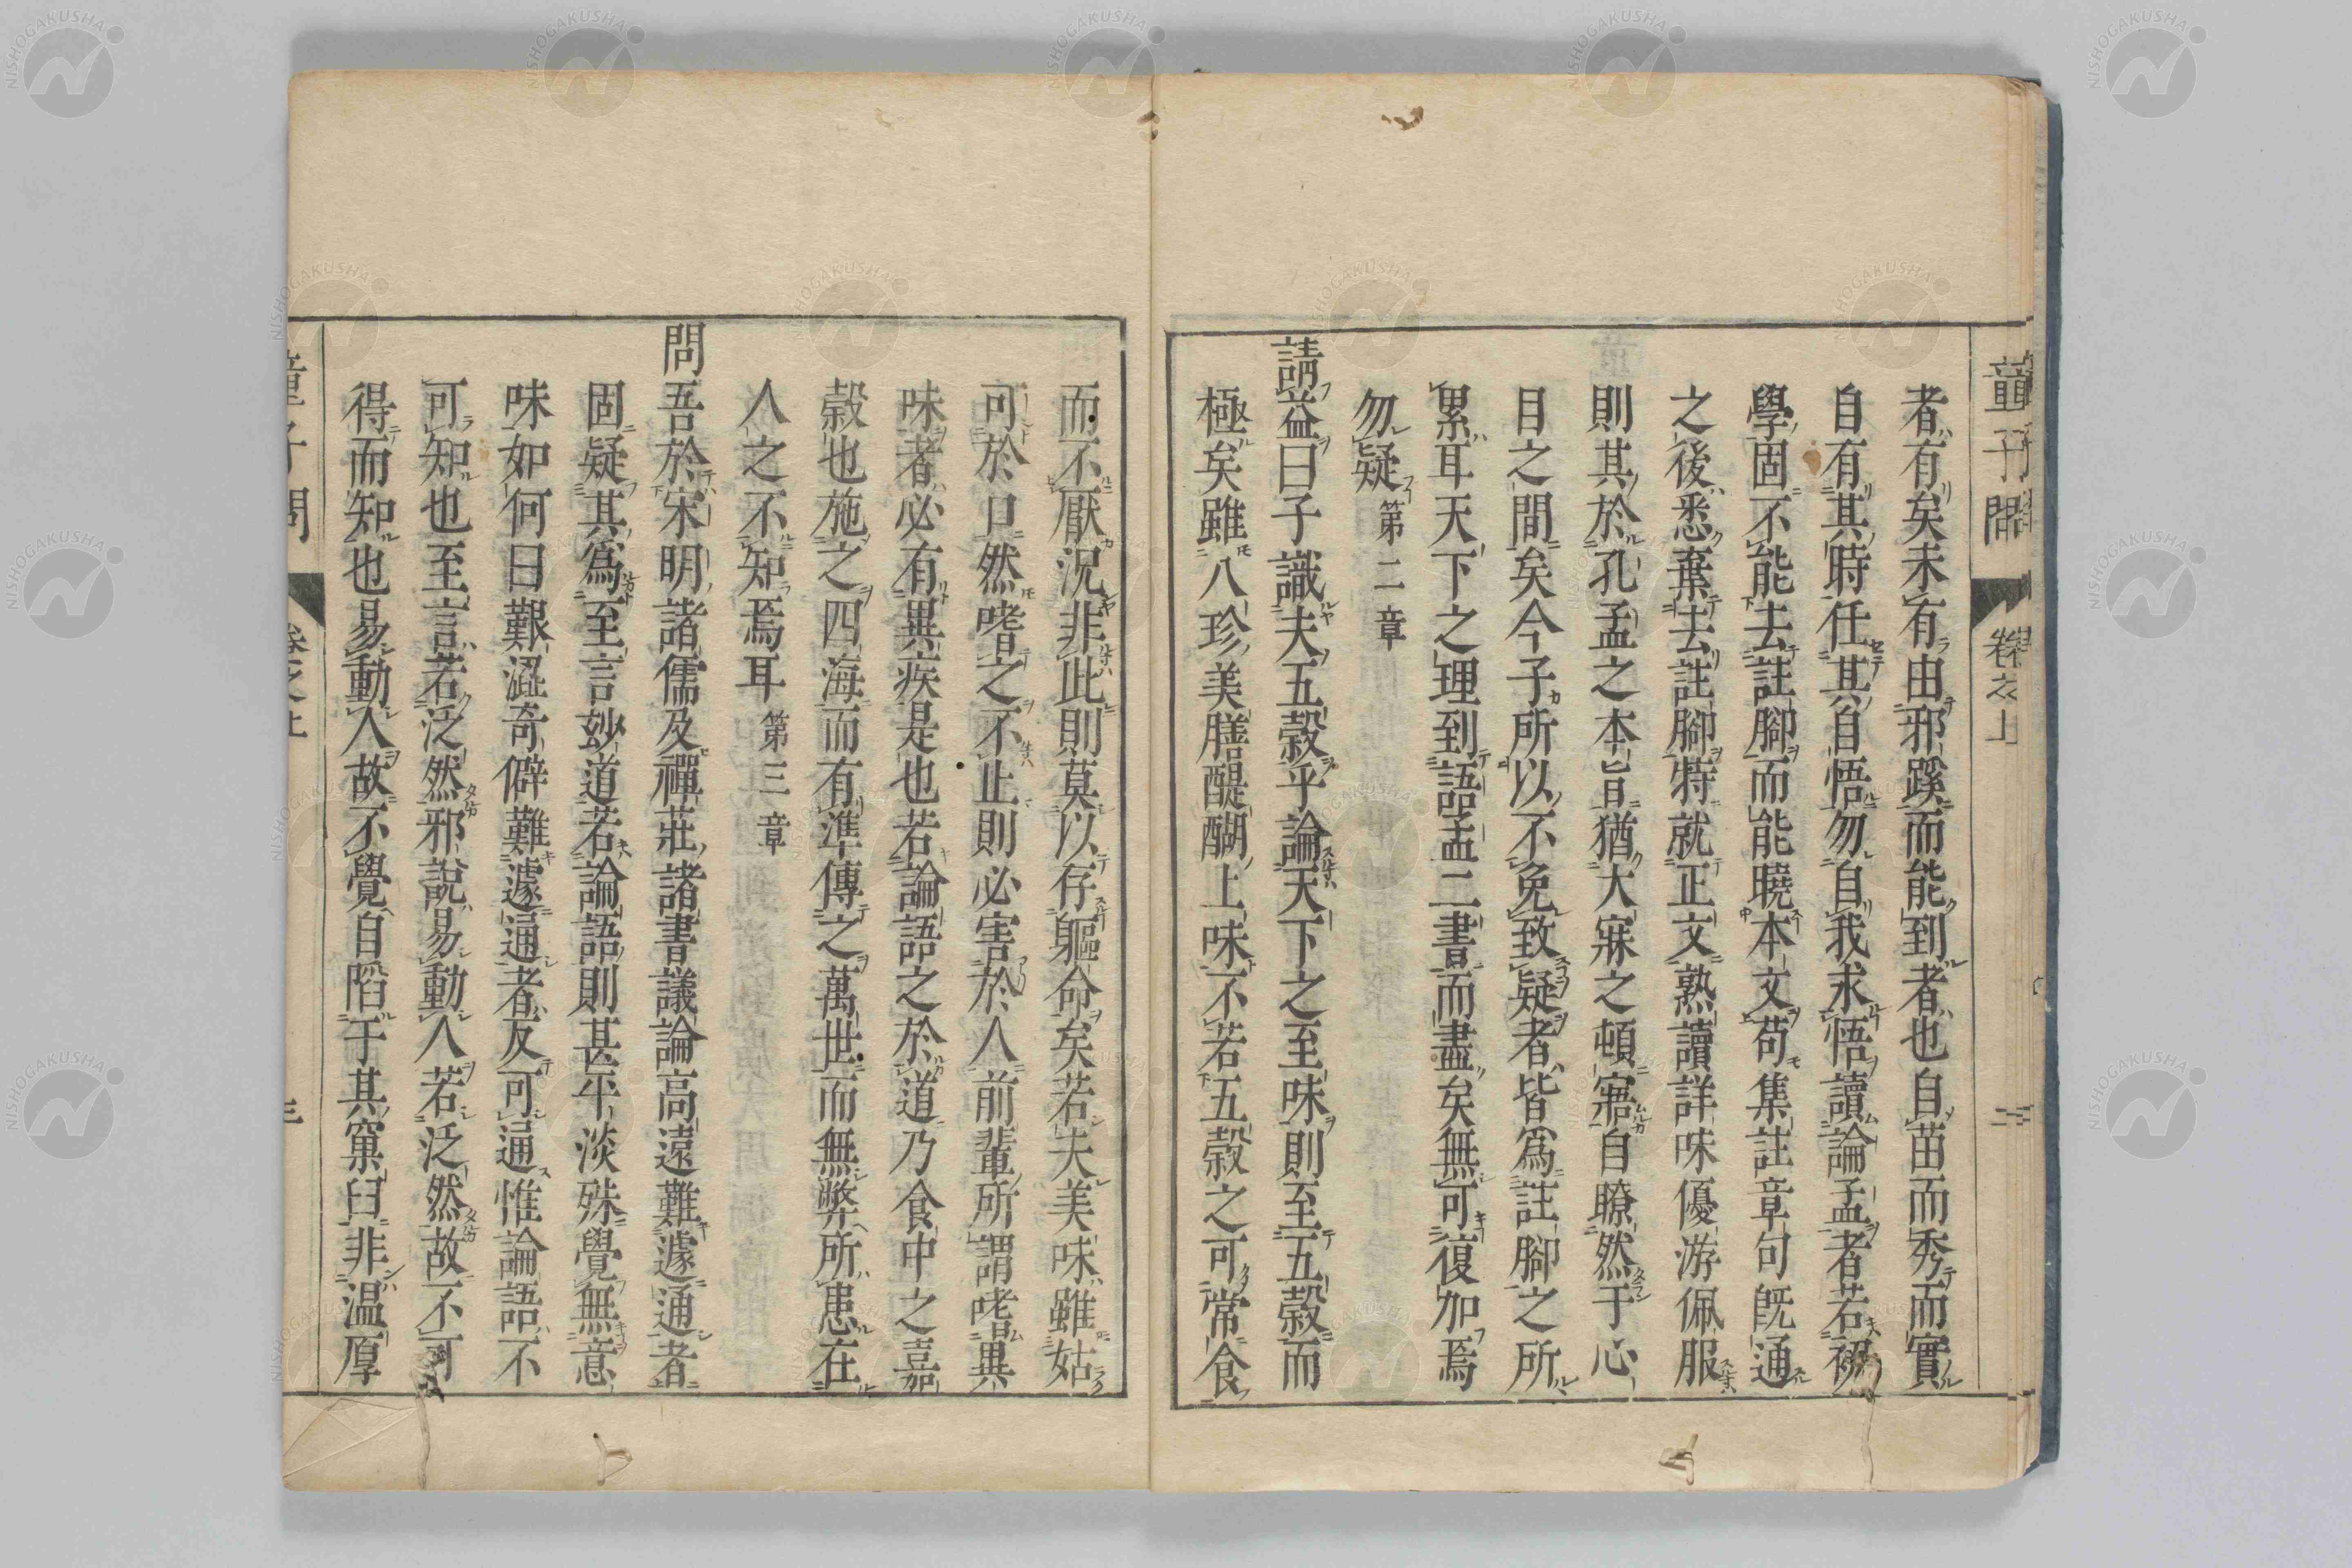 童子問 卷之上 二
者有矣未有由邪蹊而能到者也自苗而秀而實
自有其時任其自悟勿自我求悟讀論孟者若初
學固不能去註腳而能曉本文苟集註章句既通
之後悉棄去註腳特就正文熟讀詳味優游佩服
則其於孔孟之本旨猶大寐之頓寤自瞭然于心
目之間矣今子所以不免致疑者皆爲註腳之所
累耳天下之理到語孟二書而盡矣無可復加焉
勿疑 第二章
請益曰子識夫五穀乎論天下之至味則至五穀而
極矣雖八珍美膳醍醐上味不若五穀之可常食
而不厭況非此則莫以存軀命矣若夫美味雖姑
可於口然嗜之不止則必害於人前輩所謂嗜異
味者必有異疾是也若論語之於道乃食中之嘉
穀也施之四海而有準傳之萬世而無弊所患在
人之不知焉耳 第三章
問吾於宋明諸儒及禪莊諸書議論高遠難遽通者
固疑其爲至言玅道若論語則甚平淡殊覺無意
味如何曰艱澀奇僻難遽通者反可通惟論語不
可知也至言若泛然邪說易動人若泛然故不可
得而知也易動人故不覺自陷于其窠臼非溫厚
童子問 卷之上 三
NISHOGAKUSHA